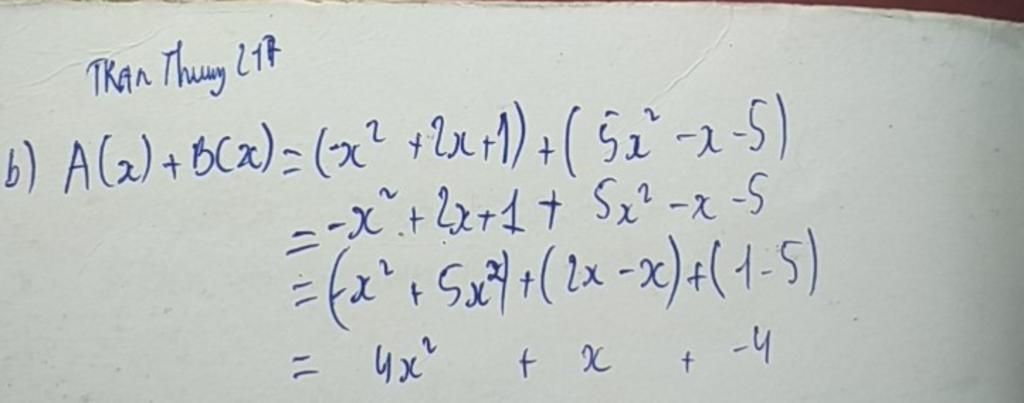 Trần Thủy 217
b) A(x) + B(x) = (-x² + 2x + 1) + (5x² - x - 5)
= -x² + 2x + 1 + 5x² - x - 5
= (-x² + 5x²) + (2x - x) + (1 - 5)
= 4x² + x + -4